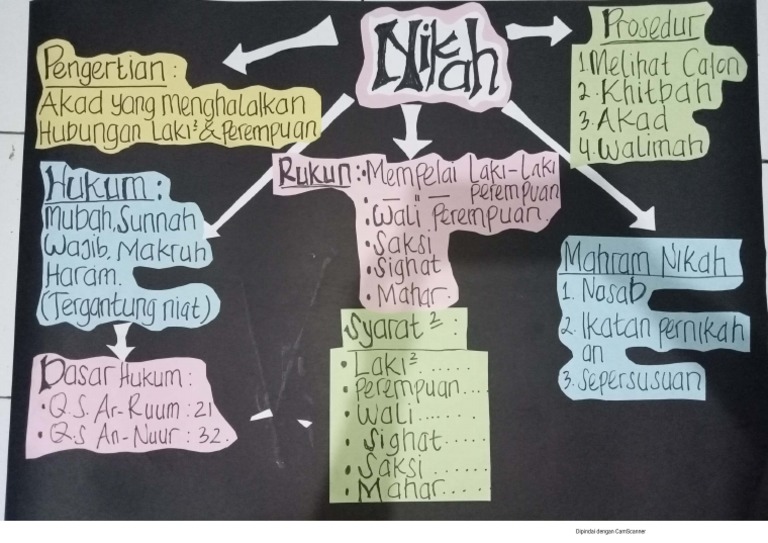 Nikah
Pengertian :
Akad yang menghalalkan
Hubungan Laki² & Perempuan
Prosedur
1. Melihat Calon
2. Khitbah
3. Akad
4. Walimah
Hukum :
Mubah, Sunnah
Wajib, Makruh
Haram.
(Tergantung niat)
Rukun : • Mempelai Laki-Laki
— " — perempuan
• Wali Perempuan.
• Saksi
• Sighat
• Mahar.
Mahram Nikah
1. Nasab
2. Ikatan pernikah
an
3. Sepersusuan
Dasar Hukum :
• Q.S. Ar-Ruum : 21
• Q.S An-Nuur : 32.
Syarat² :
• Laki² ......
• Perempuan....
• Wali......
• Sighat.....
• Saksi ......
• Mahar....
Dipindai dengan CamScanner